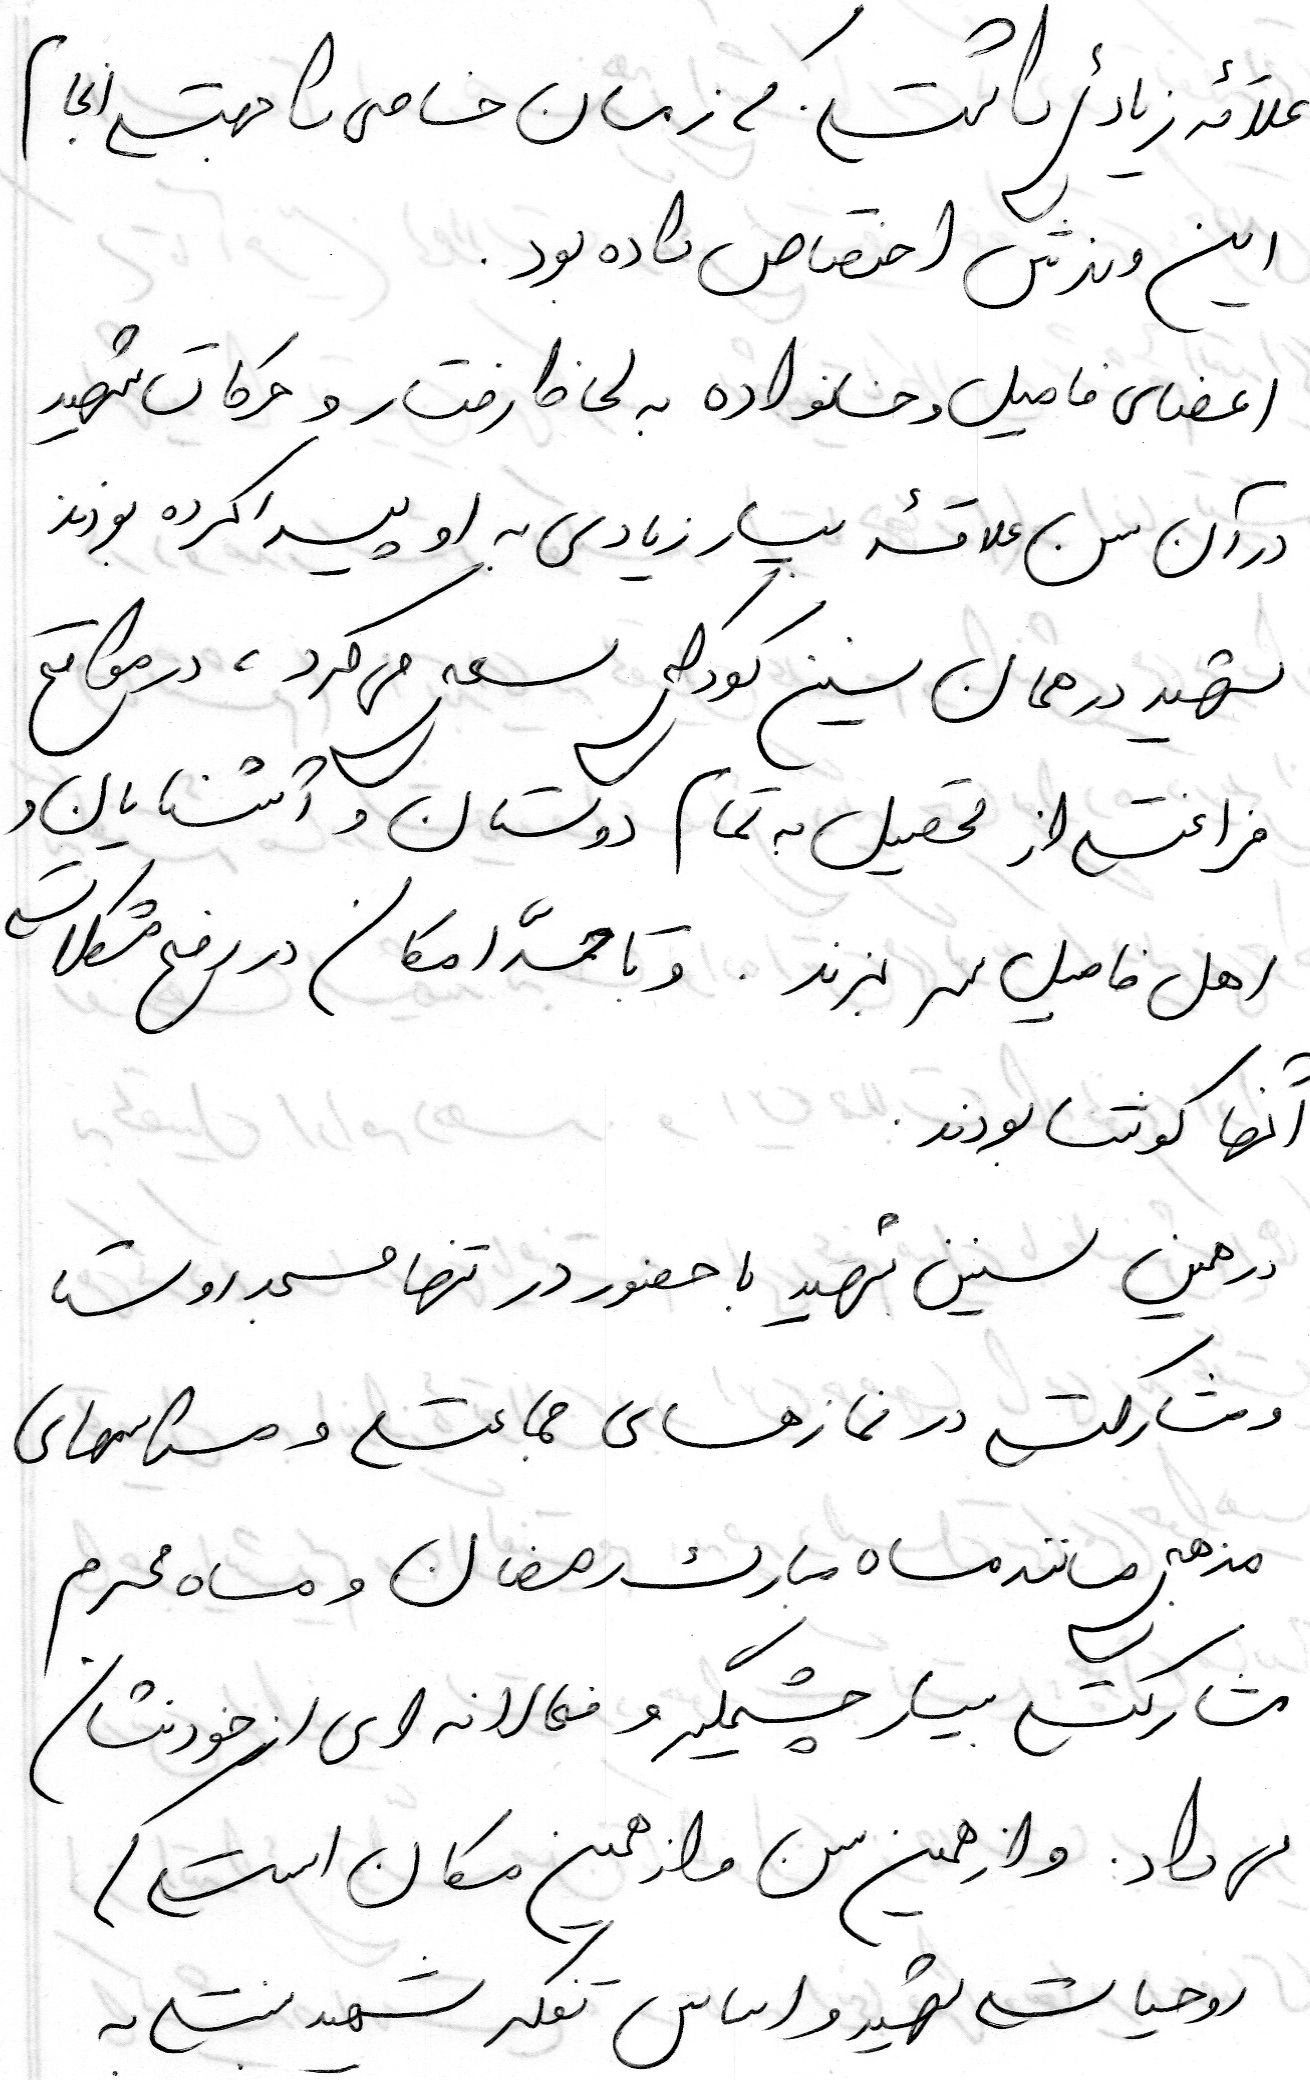 علاقهٔ زیادی داشت. که زمان خاصی را جهت انجام
این ورزش اختصاص داده بود.
اعضای فامیل و خانواده به لحاظ رفتار و حرکات شهید
در آن سن علاقهٔ بسیار زیادی به او پیدا کرده بودند
شهید در همان سنین کودکی سعی می کرد، در مواقع
فراغت از تحصیل به تمام دوستان و آشنایان و
اهل فامیل سر بزند. و تا حدّ امکان در رفع مشکلات
آنها کوشا بودند.
در همین سنین شهید با حضور در تنها مسجد روستا
و مشارکت در نمازهای جماعت و مراسمهای
مذهبی مانند ماه مبارک رمضان و ماه محرم
مشارکت بسیار چشمگیر و فعالانه ای از خود نشان
می داد. و از همین سن و از همین مکان است که
روحیات شهید و اساس تفکر شهید نسبت به